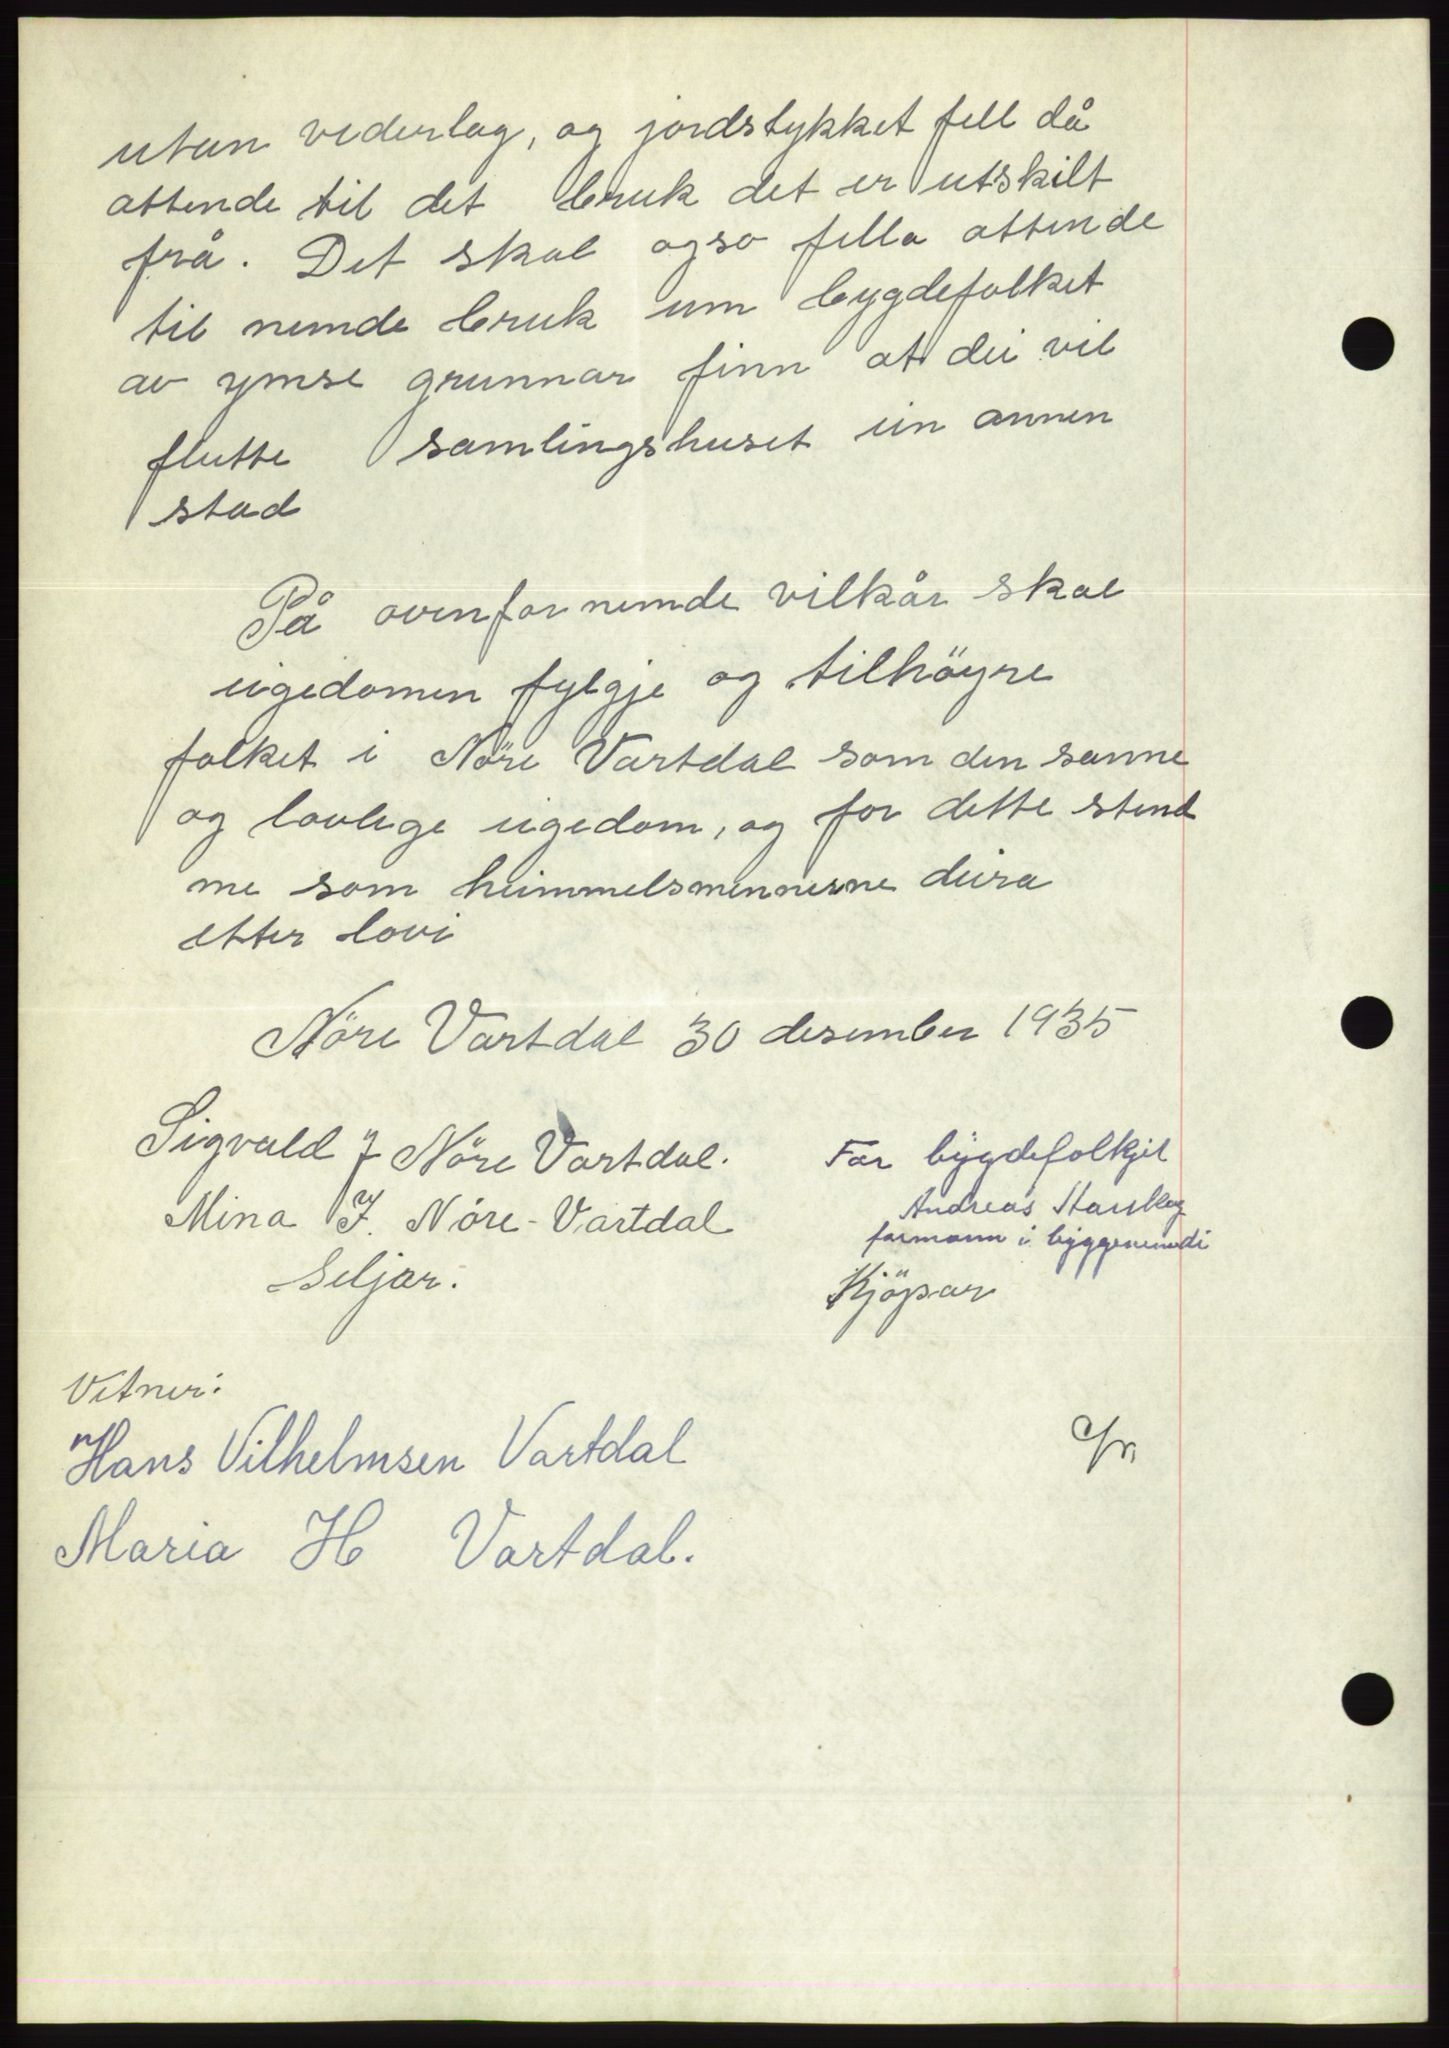 utan vederlag, og jordstykket fell då
attende til det bruk det er utskilt
frå. Det skal ogso fella attende
til nemde bruk um bygdefolket
av ymse grunnar finn at dei vil
flutte samlingshuset ein annen
stad
På ovenfornemde vilkår skal
eigedomen fylgje og tilhöyre
folket i Nöre Vartdal som den sanne
og lovlege eigedom, og for dette stend
me som heimmelsmennerne deira
etter lovi
Nöre Vartdal 30 desember 1935
Sigvald J Nöre Vartdal.
Mina J. Nöre-Vartdal
Seljar.
For bygdefolkjet
Andreas
formann i byggenemndi
Kjöpar
Vitner:
Hans Vilhelmsen Vartdal
Maria H Vartdal.